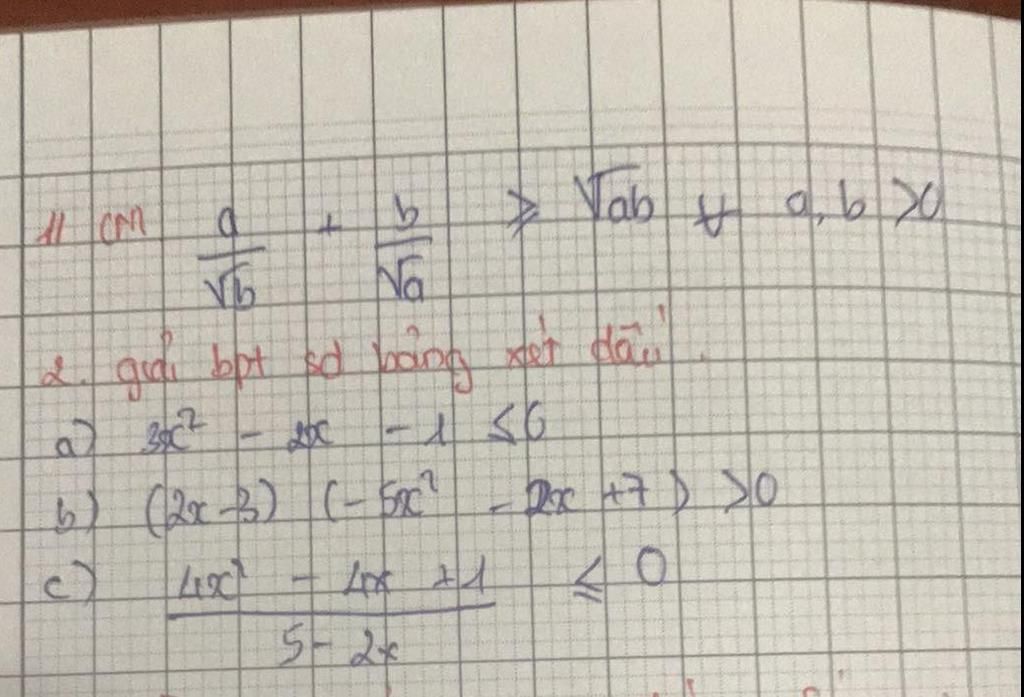 1/ CM a/√b + b/√a ≥ √ab ∀ a, b >0
2. giải bpt sd bảng xét dấu.
a) 3x² - 2x - 1 ≤ 0
b) (2x-3) (-5x² - 2x +7) >0
c) (4x² - 4x +1)/(5-2x) ≤ 0